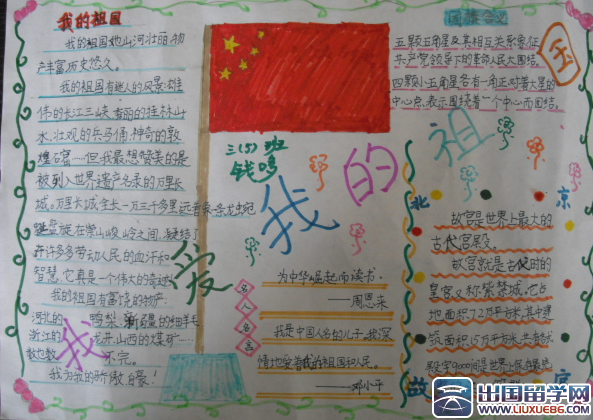 我的祖国
我的祖国她山河壮丽,物
产丰富历史悠久。
我的祖国有迷人的风景:雄
伟的长江三峡,秀丽的桂林山
水、壮观的兵马俑、神奇的敦
煌石窟……但我最想赞美的是
被列入世界遗产名录的万里长
城。万里长城全长一万三千多里,远看象一条龙
在崇山峻岭之间,凝结了
许许多多劳动人民的血汗和
智慧,它真是一个伟大的奇迹
我的祖国有富饶的物产:
河北的鸭梨、新疆的细羊毛
浙江的龙井、山西的煤矿……
数也数不完。
我为我的骄傲自豪!
三(5)班
我爱我的祖国
国旗含义
五颗五角星及其相互关系象征
共产党领导下的革命人民大团结。
四颗小五角星各有一角正对着大星的
中心点,表示围绕着一个中心而团结。
名人名言
为中华崛起而读书
——周恩来
我是中国人民的儿子,我深
情地爱着我的祖国和人民。
——邓小平
北京
故宫
故宫是世界上最大的
古代宫殿。
故宫就是古代时的
皇宫又称紫禁城,它占
地面积72万平方米,其中建
筑面积15万平方米,共有各式
出国留学网
www.liuxue86.com